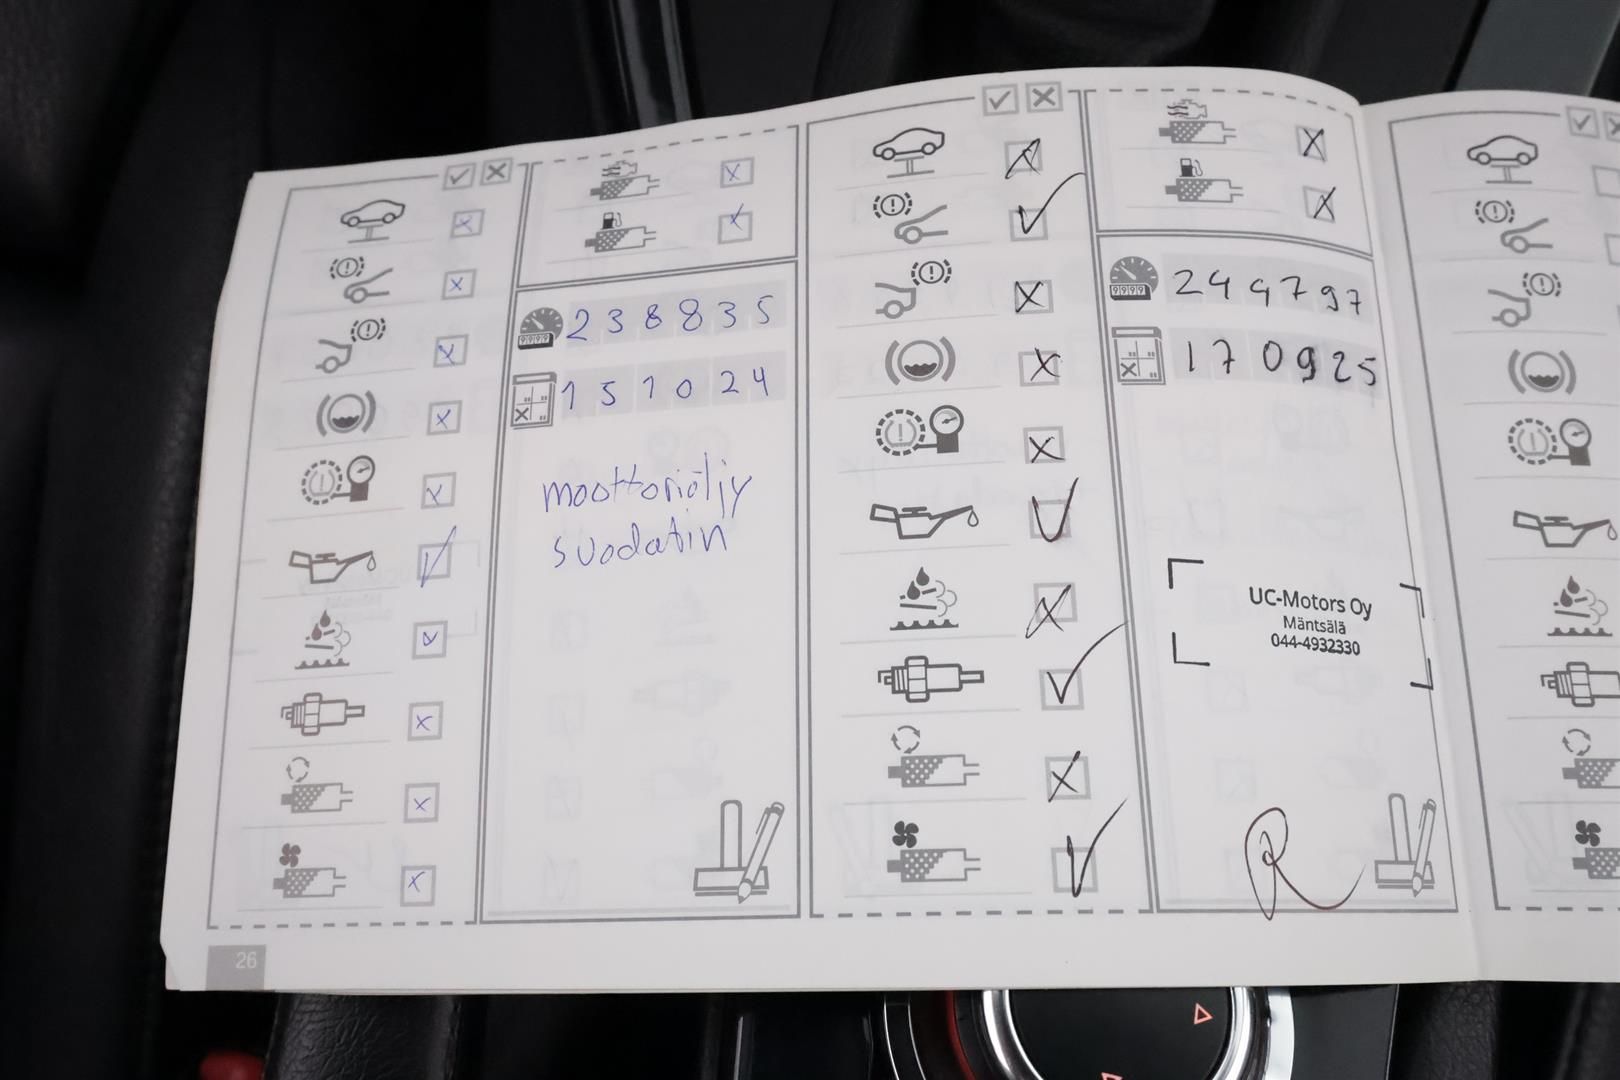 238835
151024
moottoriöljy
suodatin
26
244797
170925
UC-Motors Oy
Mäntsälä
044-4932330